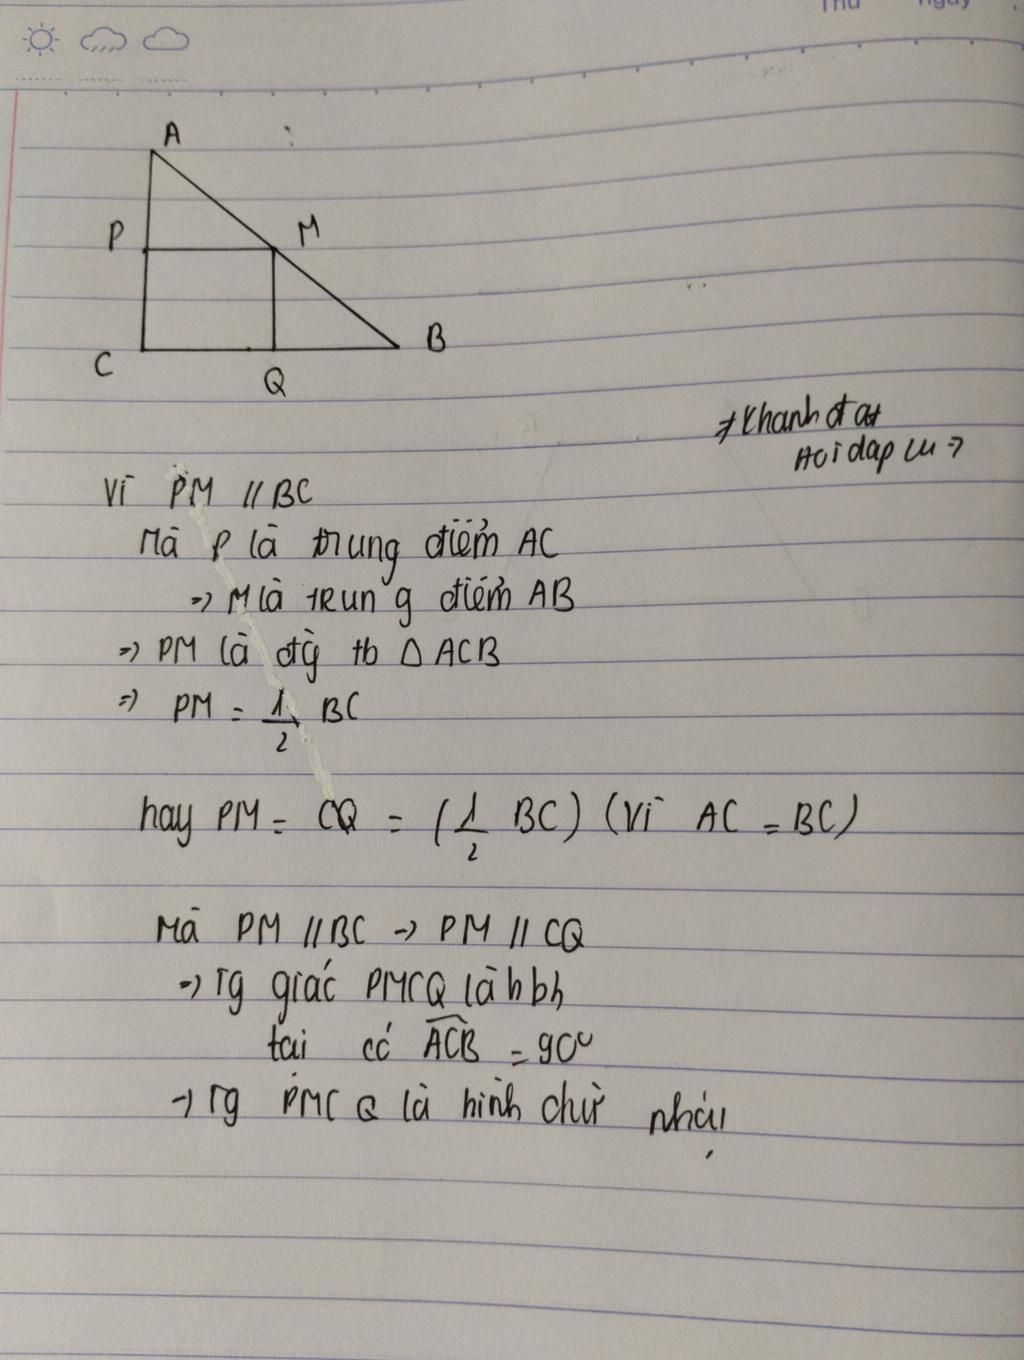 Thứ ngày
A
P M
C Q B
≠ Khanh đat
Hoidap 247
Vì PM // BC
Mà P là trung điểm AC
=> M là trung điểm AB
=> PM là đg tb Δ ACB
=> PM = 1/2 BC
hay PM = CQ = (1/2 BC) (Vì AC = BC)
Mà PM // BC -> PM // CQ
=> Tg giác PMCQ là hbh
tại có ACB = 90°
-> Tg PMCQ là hình chữ nhật